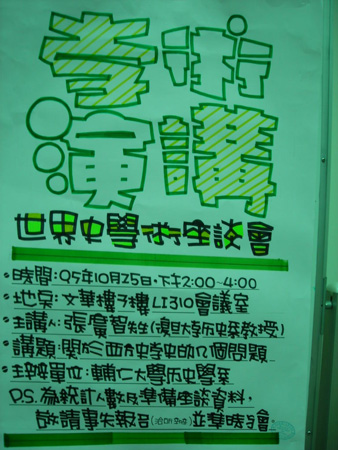 學術
演講
世界史學術座談會
•時間:95年10月25日,下午2:00~4:00
•地点:文華樓3樓LI310會議室
•主講人:張廣智先生(復旦大學歷史系教授)
•講題:關於西方史學史的几個問題
•主辦單位:輔仁大學歷史學系
P.S.為統計人數及準備座談資料,
敬請事先報名並準時與會。